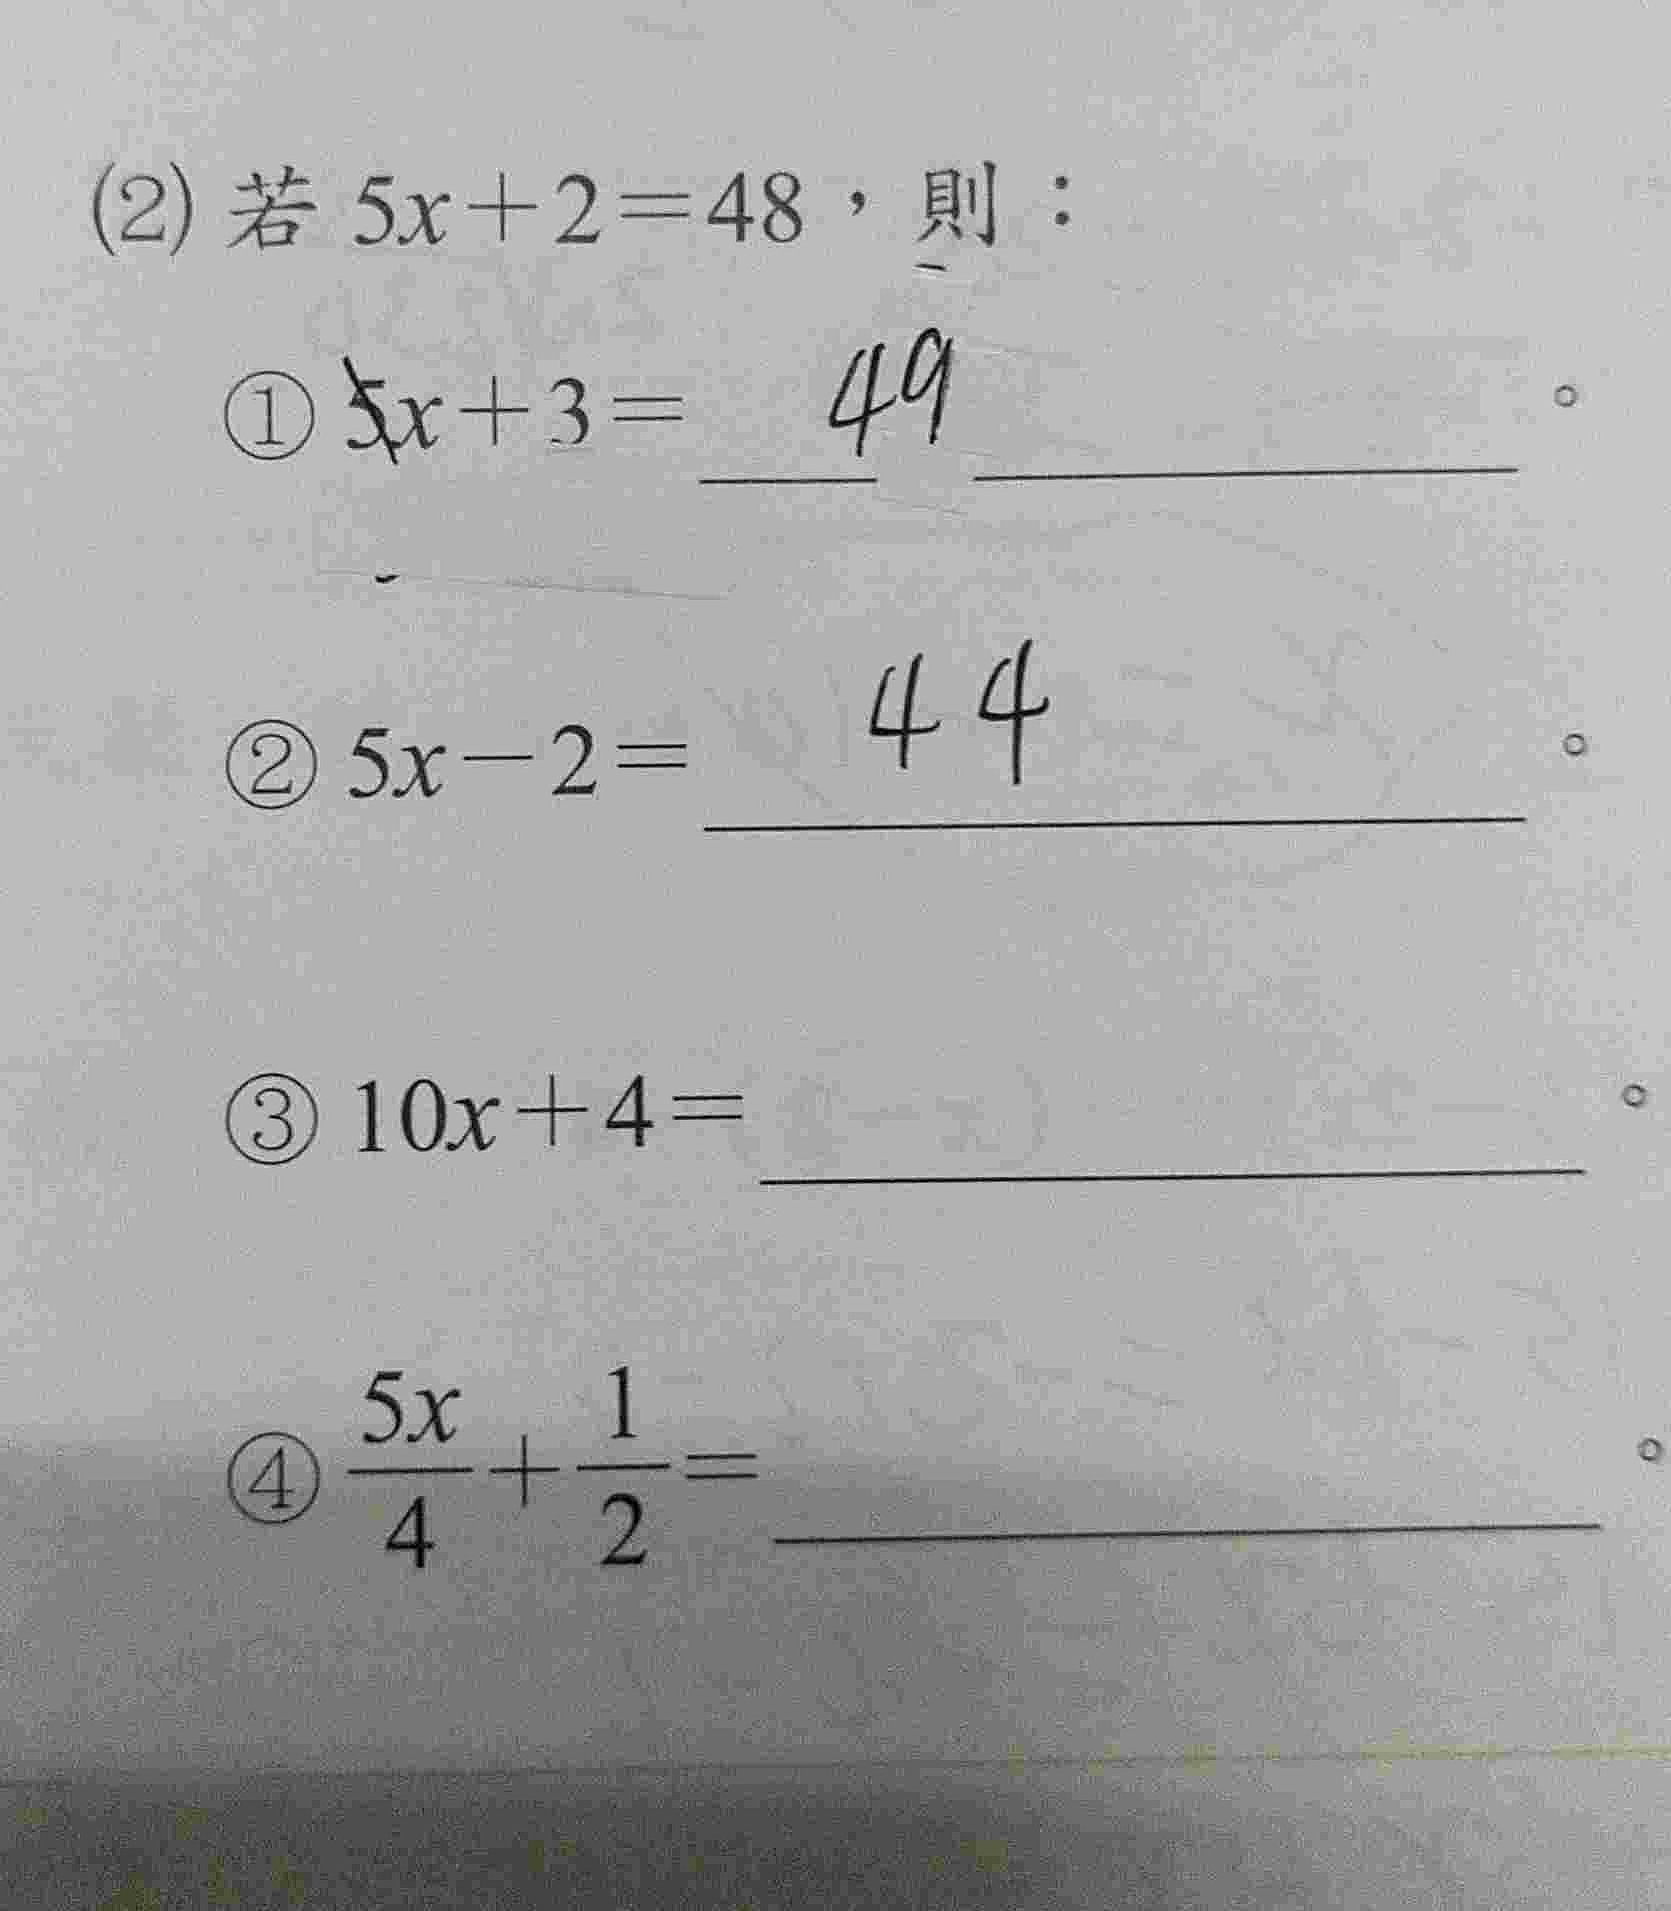 (2) 若 5x+2=48，則：
① 5x+3= 49 。
② 5x−2= 44 。
③ 10x+4= 。
④ 5x/4+1/2= 。